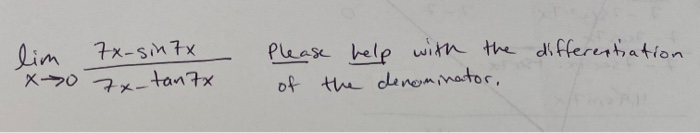 lim x→0 7x-sin7x / 7x-tan7x Please help with the differentiation
of the denominator.